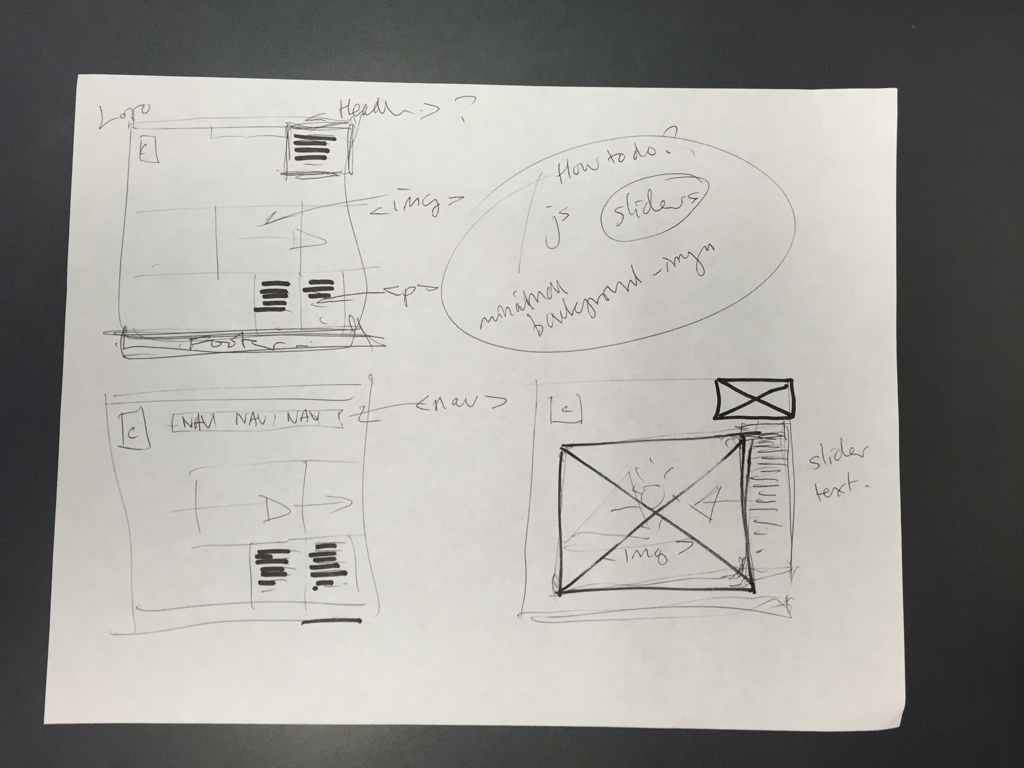 Logo
Header > ?
<img>
<p>
Footer
How to do?
js sliders
background-img
c
NAV NAV NAV
<nav>
c
<img>
slider
text.